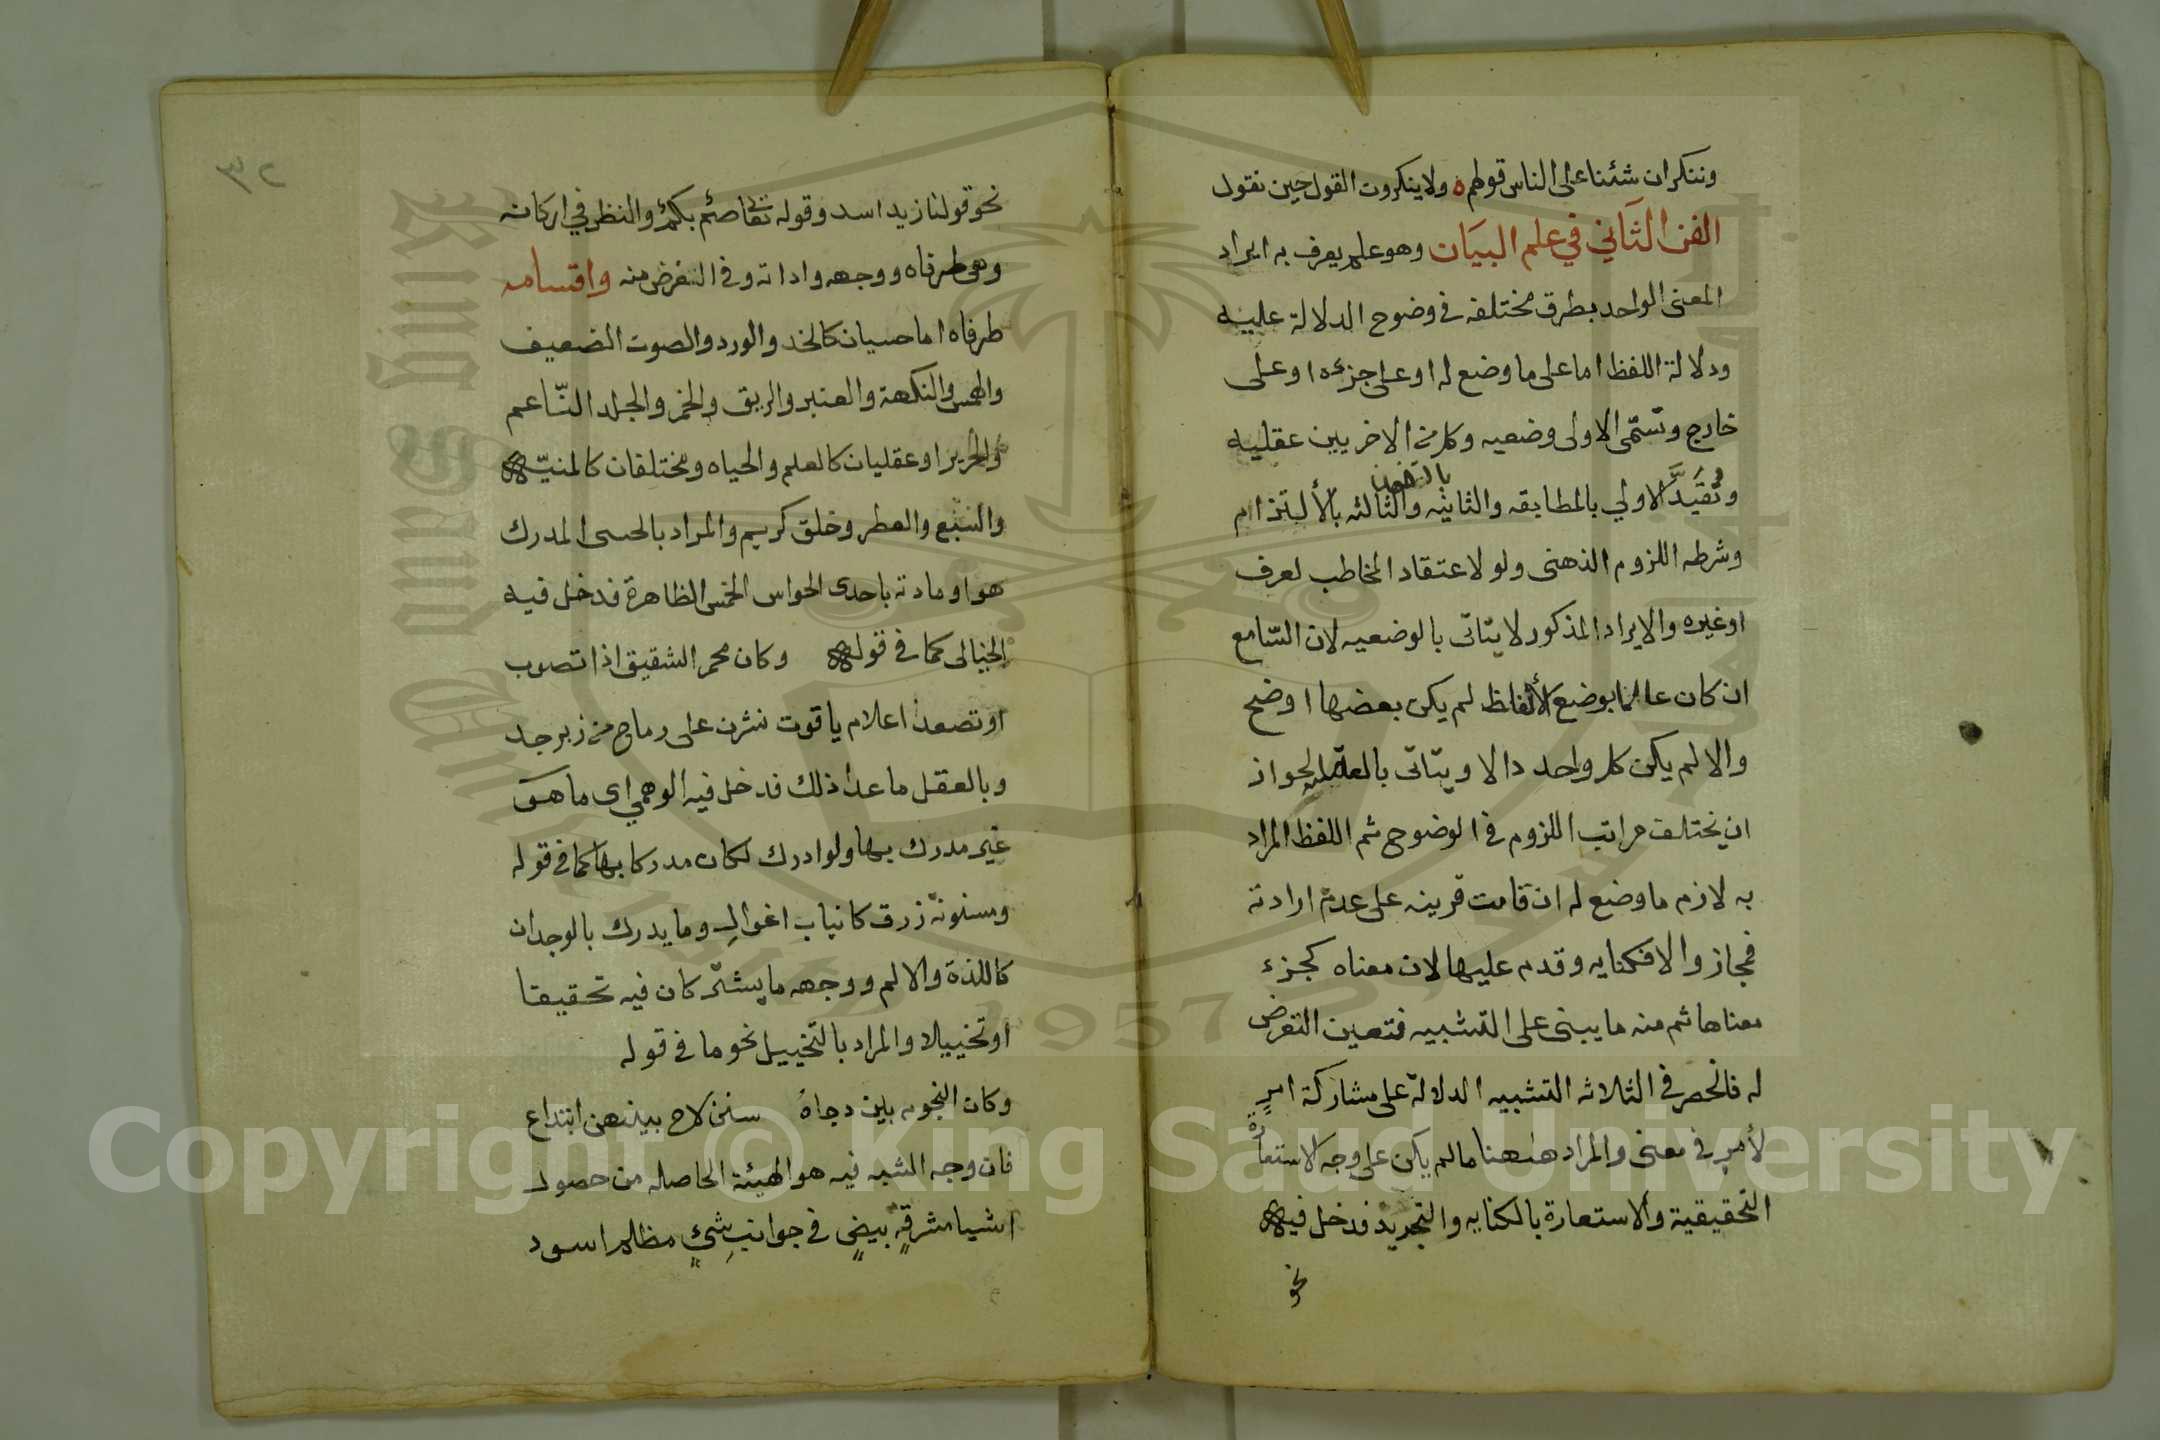 وننكر ان شئنا على الناس قولهم ه ولا ينكروت القول حين نقول
الفن الثاني في علم البيان وهو علم يعرف به ايراد
المعنى الواحد بطرق مختلفه في وضوح الدلالة عليه
ودلالة اللفظ اما على ما وضع له او على جزءه او على
خارج وتسمى الاولى وضعيه وكل من الاخريين عقليه
بالتضمن
وتقيد الاولي بالمطابقه والثانيه والثالثه بالألتزام
وشرطه اللزوم الذهنى ولو لاعتقاد المخاطب لعرف
او غيره والايراد المذكور لا يتاتى بالوضعيه لان السامع
ان كان عالما بوضع الألفاظ لم يكن بعضها اوضح
والا لم يكن كل واحد دالا ويتاتى بالعقليه لجواز
ان يختلف مراتب اللزوم في الوضوح ثم اللفظ المراد
به لازم ما وضع له ان قامت قرينه على عدم ارادته
فمجاز والا فكنايه وقدم عليها لان معناه كجزء
معناها ثم منه ما يبنى على التشبيه فتعين التعرض
له فانحصر في الثلاثه التشبيه الدلالة على مشاركة امرٍ
لأمرٍ في معنى والمراد هاهنا ما لم يكن على وجه الاستعارة
التحقيقية والاستعارة بالكنايه والتجريد فدخل فيه
نحو
٣٢
نحو قولنا زيد اسد وقوله تعالى صم بكم والنظر في اركانه
وهى طرفاه ووجهه واداته وفي الغرض منه واقسامه
طرفاه اما حسيان كالخد والورد والصوت الضعيف
والهمس والنكهة والعنبر والريق والخمر والجلد الناعم
والحرير او عقليان كالعلم والحياه ومختلفان كالمنيّه
والسبع والعطر وخلق كريم والمراد بالحسى المدرك
هو او مادته باحدى الحواس الخمس الظاهرة فدخل فيه
الخيالى كما في قوله وكان محمر الشقيق اذا تصوب
او تصعد اعلام ياقوت نشرن على رماح من زبرجد
وبالعقل ما عدا ذلك فدخل فيه الوهمي اى ما هو
غير مدرك بها ولو ادرك لكان مدركا بها كما في قوله
ومسنونة زرق كانياب اغوال وما يدرك بالوجدان
كاللذة والالم ووجهه ما يشتركان فيه تحقيقا
او تخييلا والمراد بالتخييل نحو ما في قوله
وكان النجوم بين دجاهُ سنن لاح بينهن ابتداع
فان وجه الشبه فيه هو الهيئة الحاصله من حصول
اشيا مشرقةٍ بيضٍ في جوانب شئٍ مظلم اسود
Copyright © King Saud University
King Saud University
1957